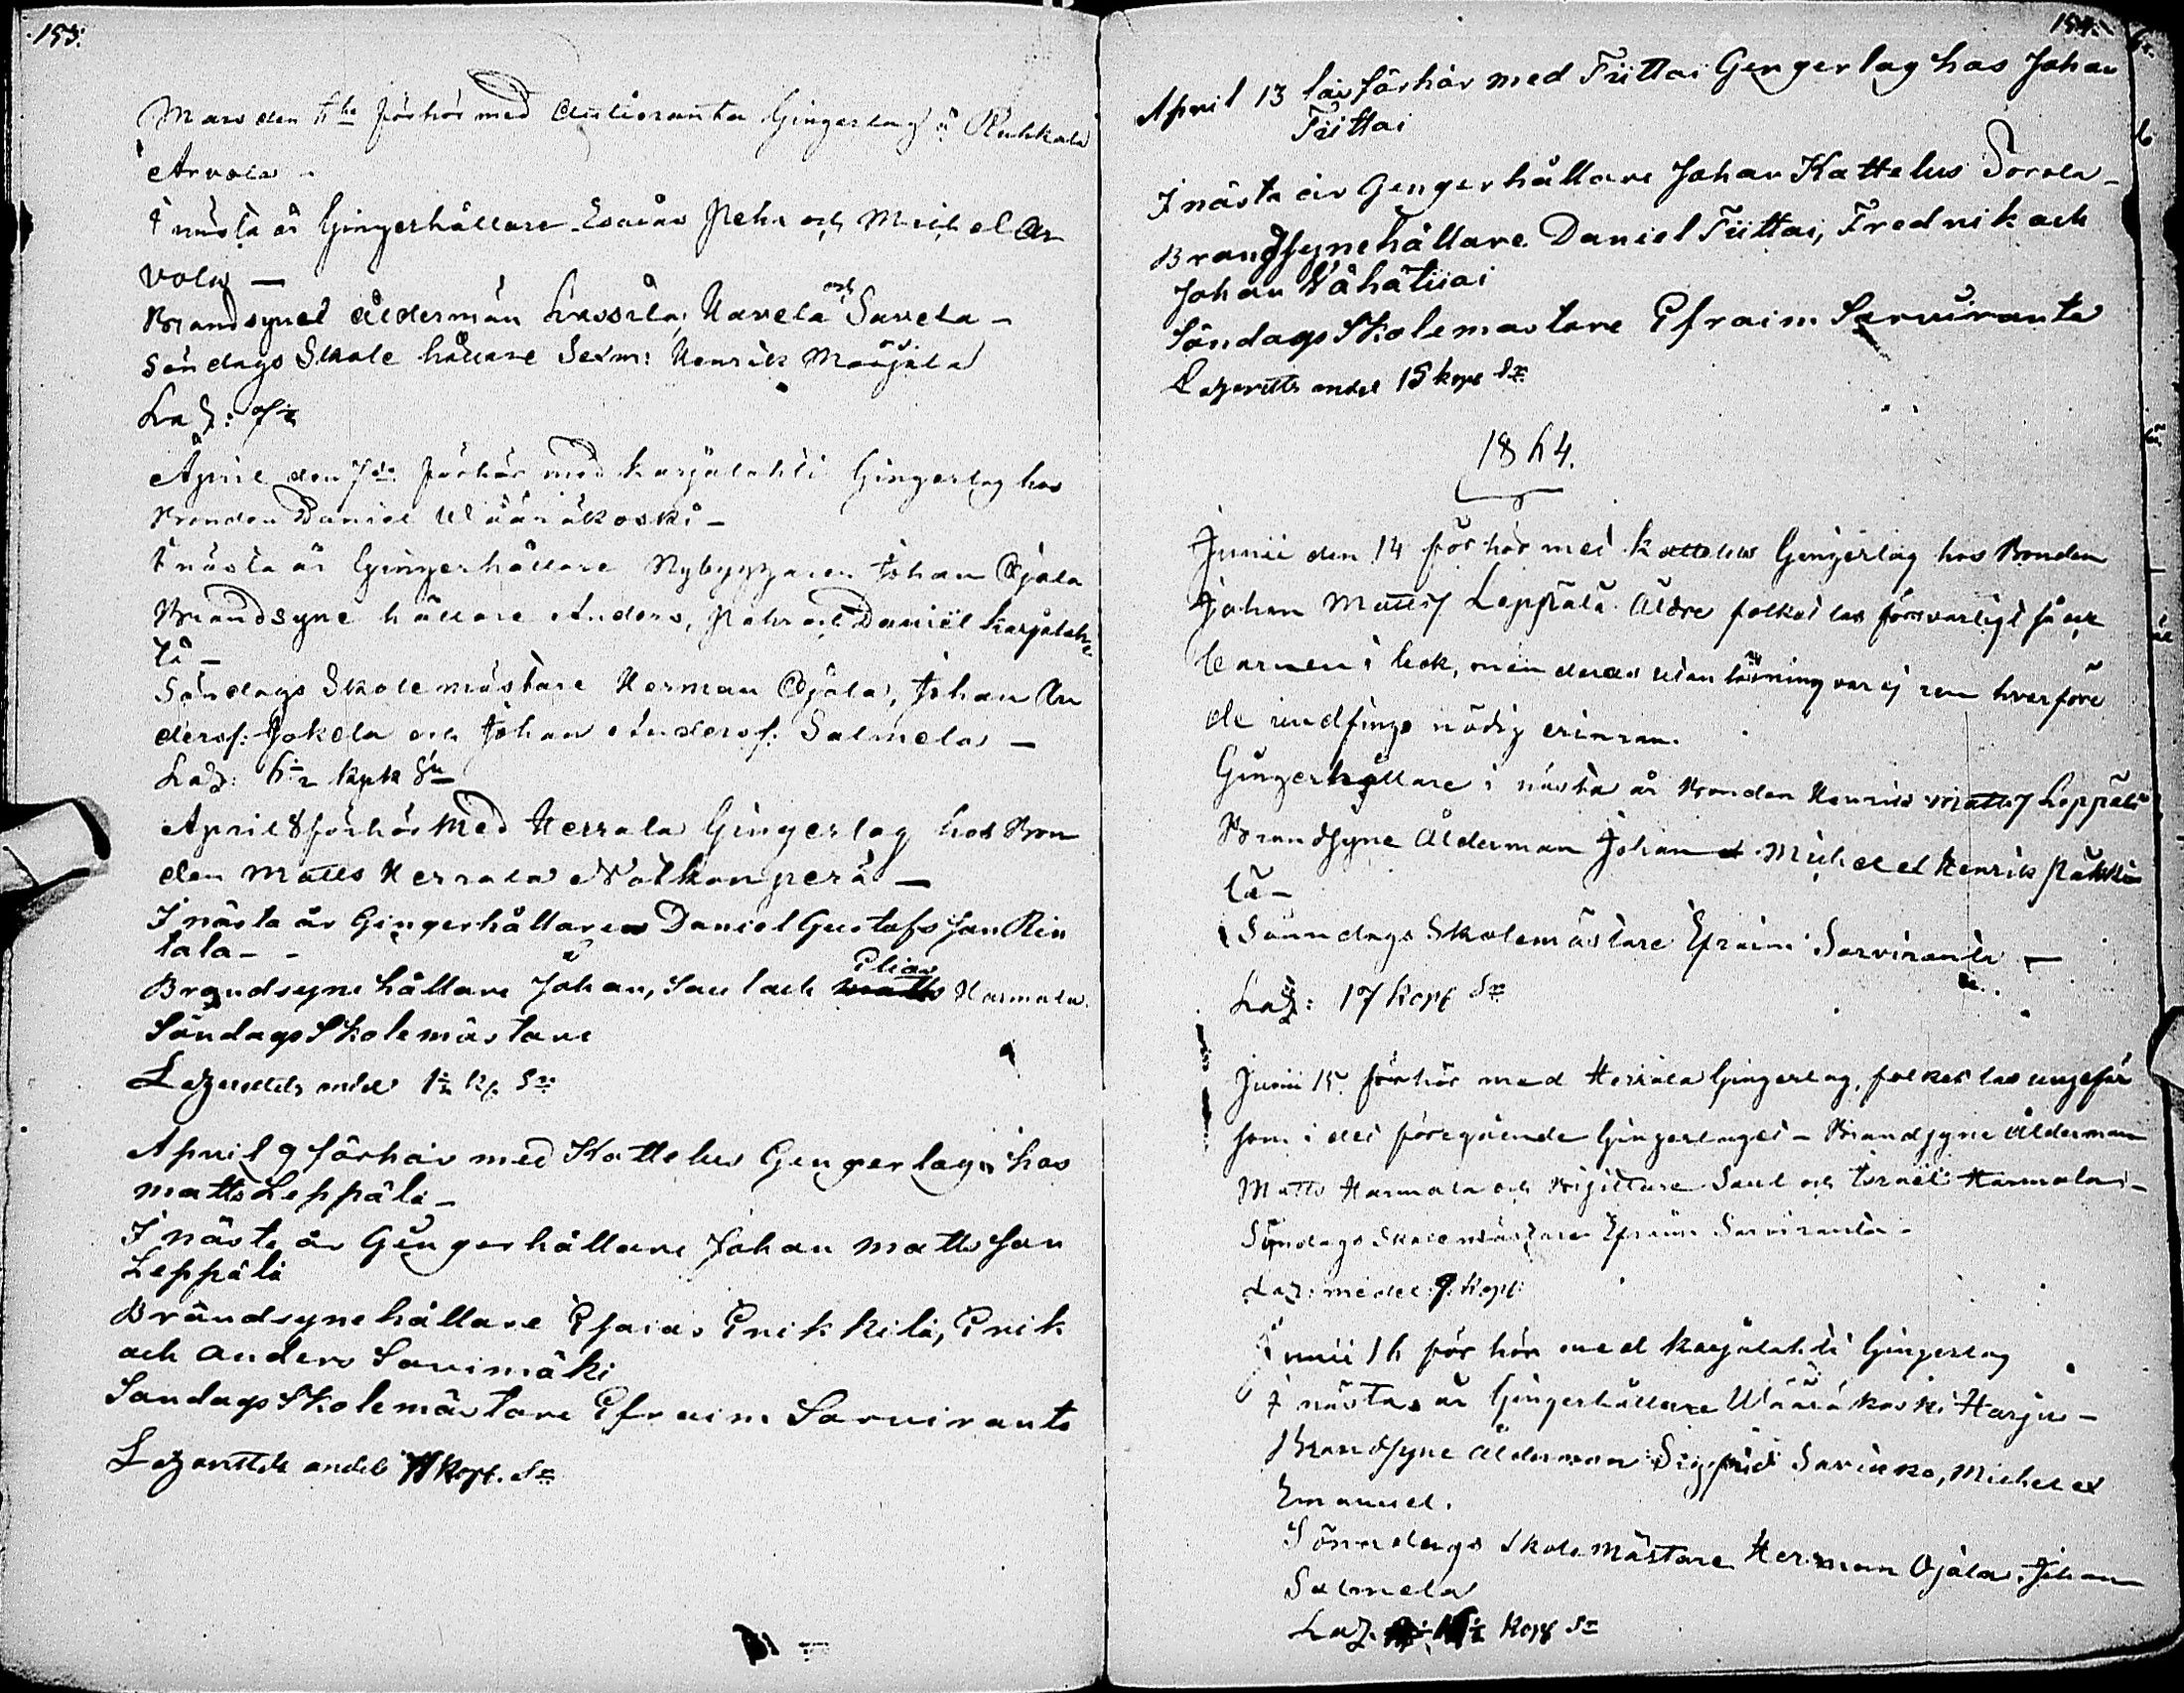 153.
Mars den förhör med Autioranta Gingerlag å Ruhkala
Arvola -
I nästa år Gingerhållare Esaias Pehr och Michel Ar
vola —
Brandsynet ålderman Lassila, Kavela och Savela -
Söndags Skole hållare Sexm: Henrik
Laz:
April den 7de förhör med Karjalahti Gingerlag hos
Bonden Daniel Wääräkoski -
I nästa år Gingerhållare Nybyggaren Johan Ojala
Brandsyne hållare Anders, Pehr och Daniel Karjalah
ti -
Söndags Skolemästare Herman Ojala, Johan An
dersf: Jokela och Johan Andersf: Salmela —
Laz: 6½ kopk Sr
April 8 förhör med Herrala Gingerlag hos Bon
den Matts Herrala Nolkonperä —
I nästa år Gingerhållaren Daniel Gustafsson Rin
tala - -
Brandsyne hållare Johan, Saul och Elias Harmala.
Söndags Skolemästare
Lazeretts andel 1½ Kp. Sr
April 9 förhör med Kattelus Gengerlag hos
Matts Leppälä -
I näste år Gingerhållare Johan Mattsson
Leppälä
Brandsynehållare Esaias Erikkilä, Erik
och Anders Savimäki
Sondags Skolemästare Efraim Sarviranta
Lazaretts andel Kopf. Sr
154.
April 13 läsförhör med Tiittai Gengerlag hos Johan
Tiittai
I nästa år Gengerhållare Johan Kattelus Sorola -
Brandsynehållare Daniel Tiittai, Fredrik och
Johan Vähätiiai
Söndags Skolemastare Efraim Sarviranta
Lazaretts andel 15 kopf Sr
1864.
Junii den 14 förhör med Kattelus Gingerlag hos Bonden
Johan Mattsf Leppälä. Äldre folket las försvarligt så ock
barnen i bok, men deras utan läsning var ej ren hvarföre
de undfingo nödig erinran.
Gingerhållare i nästa år Bonden Henrik Mattsf Leppälä
Brandsyne Ålderman Johan Michel el Henrik
lä -
Sönndags Skolemästare Efraim Sarviranta —
Laz: 17 Kopf Sr
Junii 15. förhör med Herrala Gingerlag, folket las ungefär
som i det föregående Gingerlaget - Brandsyne Ålderman
Matts Harmala och Saul och Israel Harmala -
Söndags Skolemästaren Efraim Sarviranta -
Laz: medel 9 Kopf.
Junii 16 förhör med Karjalahti Gingerlag
I nästa år Gingerhållare Wääräkoski Harju -
Brandsyne ålderman Sigfrid Savinko, Michel et
Emanuel.
Sönndags Skolemästare Herman Ojala, Johan
Salmela
Laz. Kopf Sr